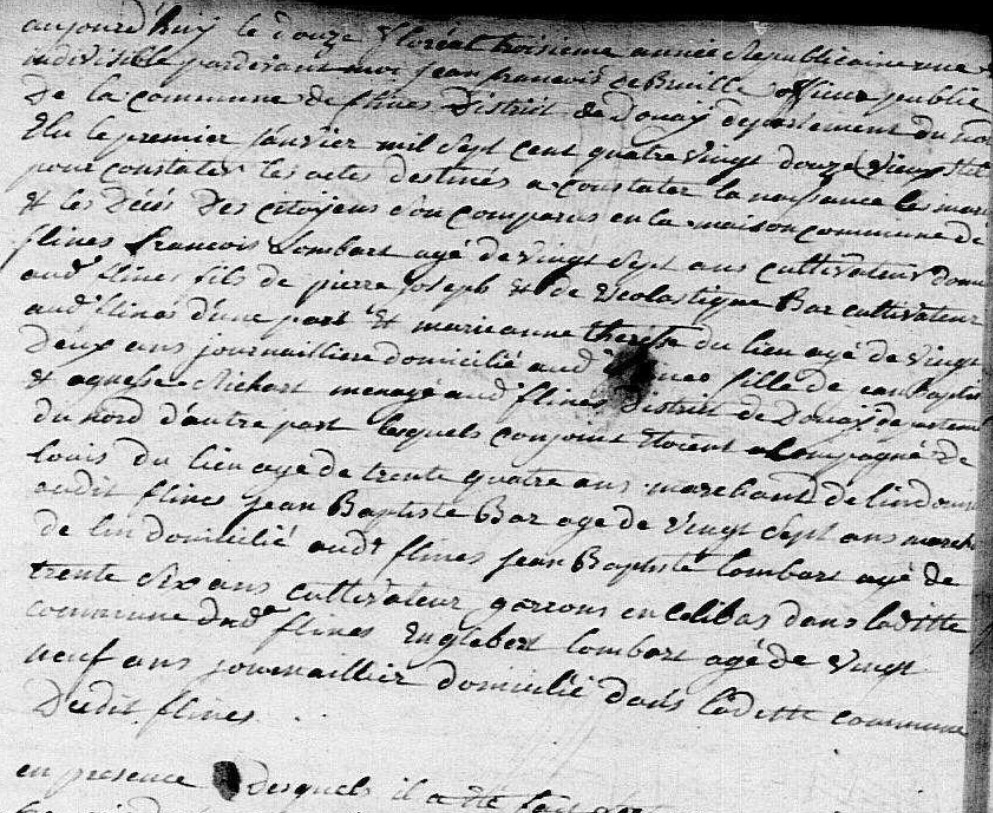 aujourd'huy le douze floréal troisieme année Republicaine une
indivisible pardevant moi jean francois deBruille officier public
De la commune de flines District de Douay departement du nor
Elu le premier janvier mil sept cent quatre vingt douze (vieux stil
pour constater les actes destinés a constater la naissance les mari
& les Décés Des citoyens son comparus en la maison commune de
flines francois Lombart agé de vingt sept ans cultivateur domi
audt flines fils de pierre joseph & de Scolastique Bar cultivateur
audt flines d'une part & marieanne therese du lien agé de vingt
Deux ans journailliere domicilié audt flines fille de jean Baptis
& agnesse Richart menagé audt flines District de Douay departem
du nord d'autre part lesquels conjoint etoient acompagné de
louis du lien agé de trente quatre ans marchand de lin dom
audit flines jean Baptiste Bar age de vingt sept ans march
de lin domicilié audt flines jean Baptiste lombart agé de
trente six ans cultivateur garcons en celibas dans laditte
commune dudt flines Englebert lombart agé de vingt
neuf ans journaillier domicilié dans laditte commune
Dudit flines
en presence desquels il a été fait